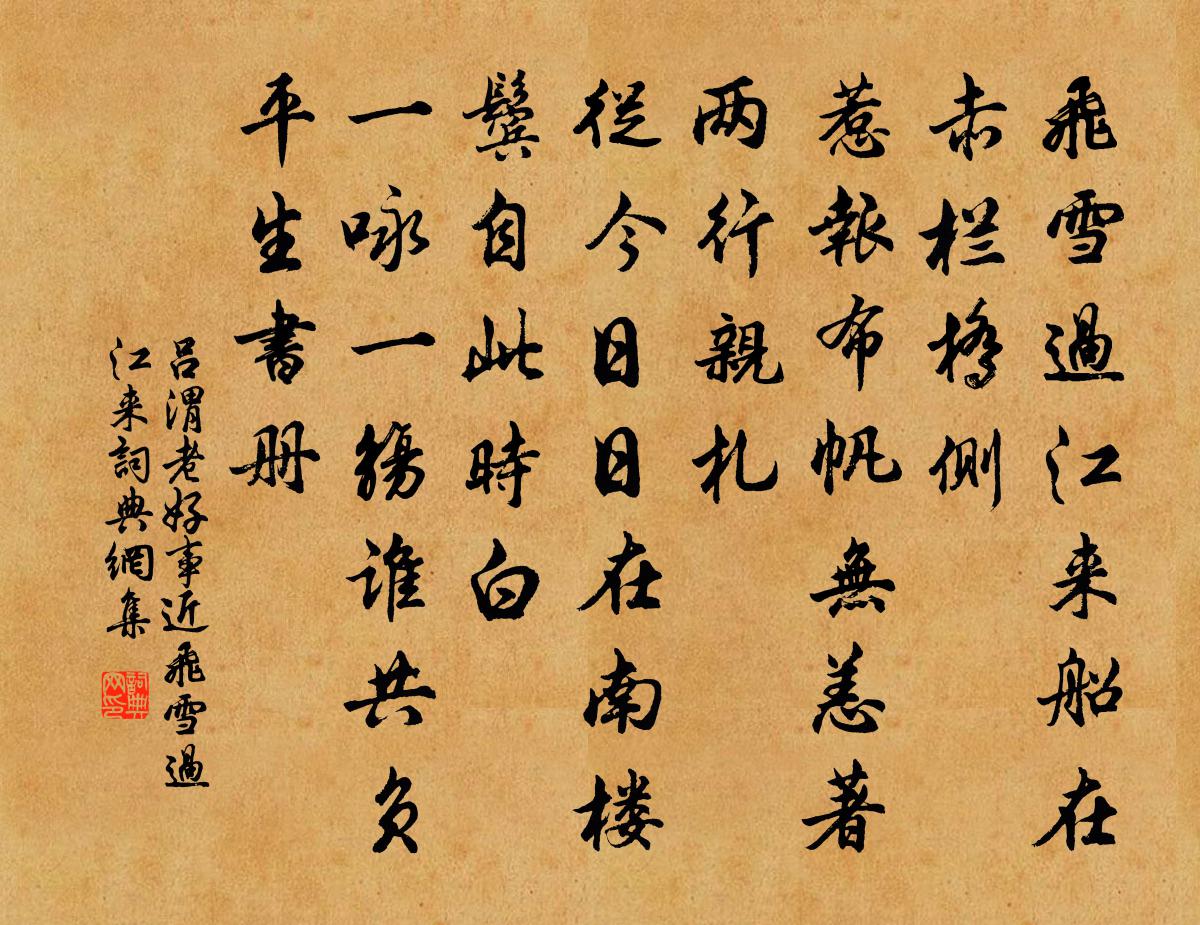 飛雪過江来船在
赤栏橋側
惹報布帆無恙著
两行親札
從今日日在南楼
鬓自此時白
一咏一觴谁共负
平生書册
吕渭老好事近飛雪過
江来詞典網集
詞典网印